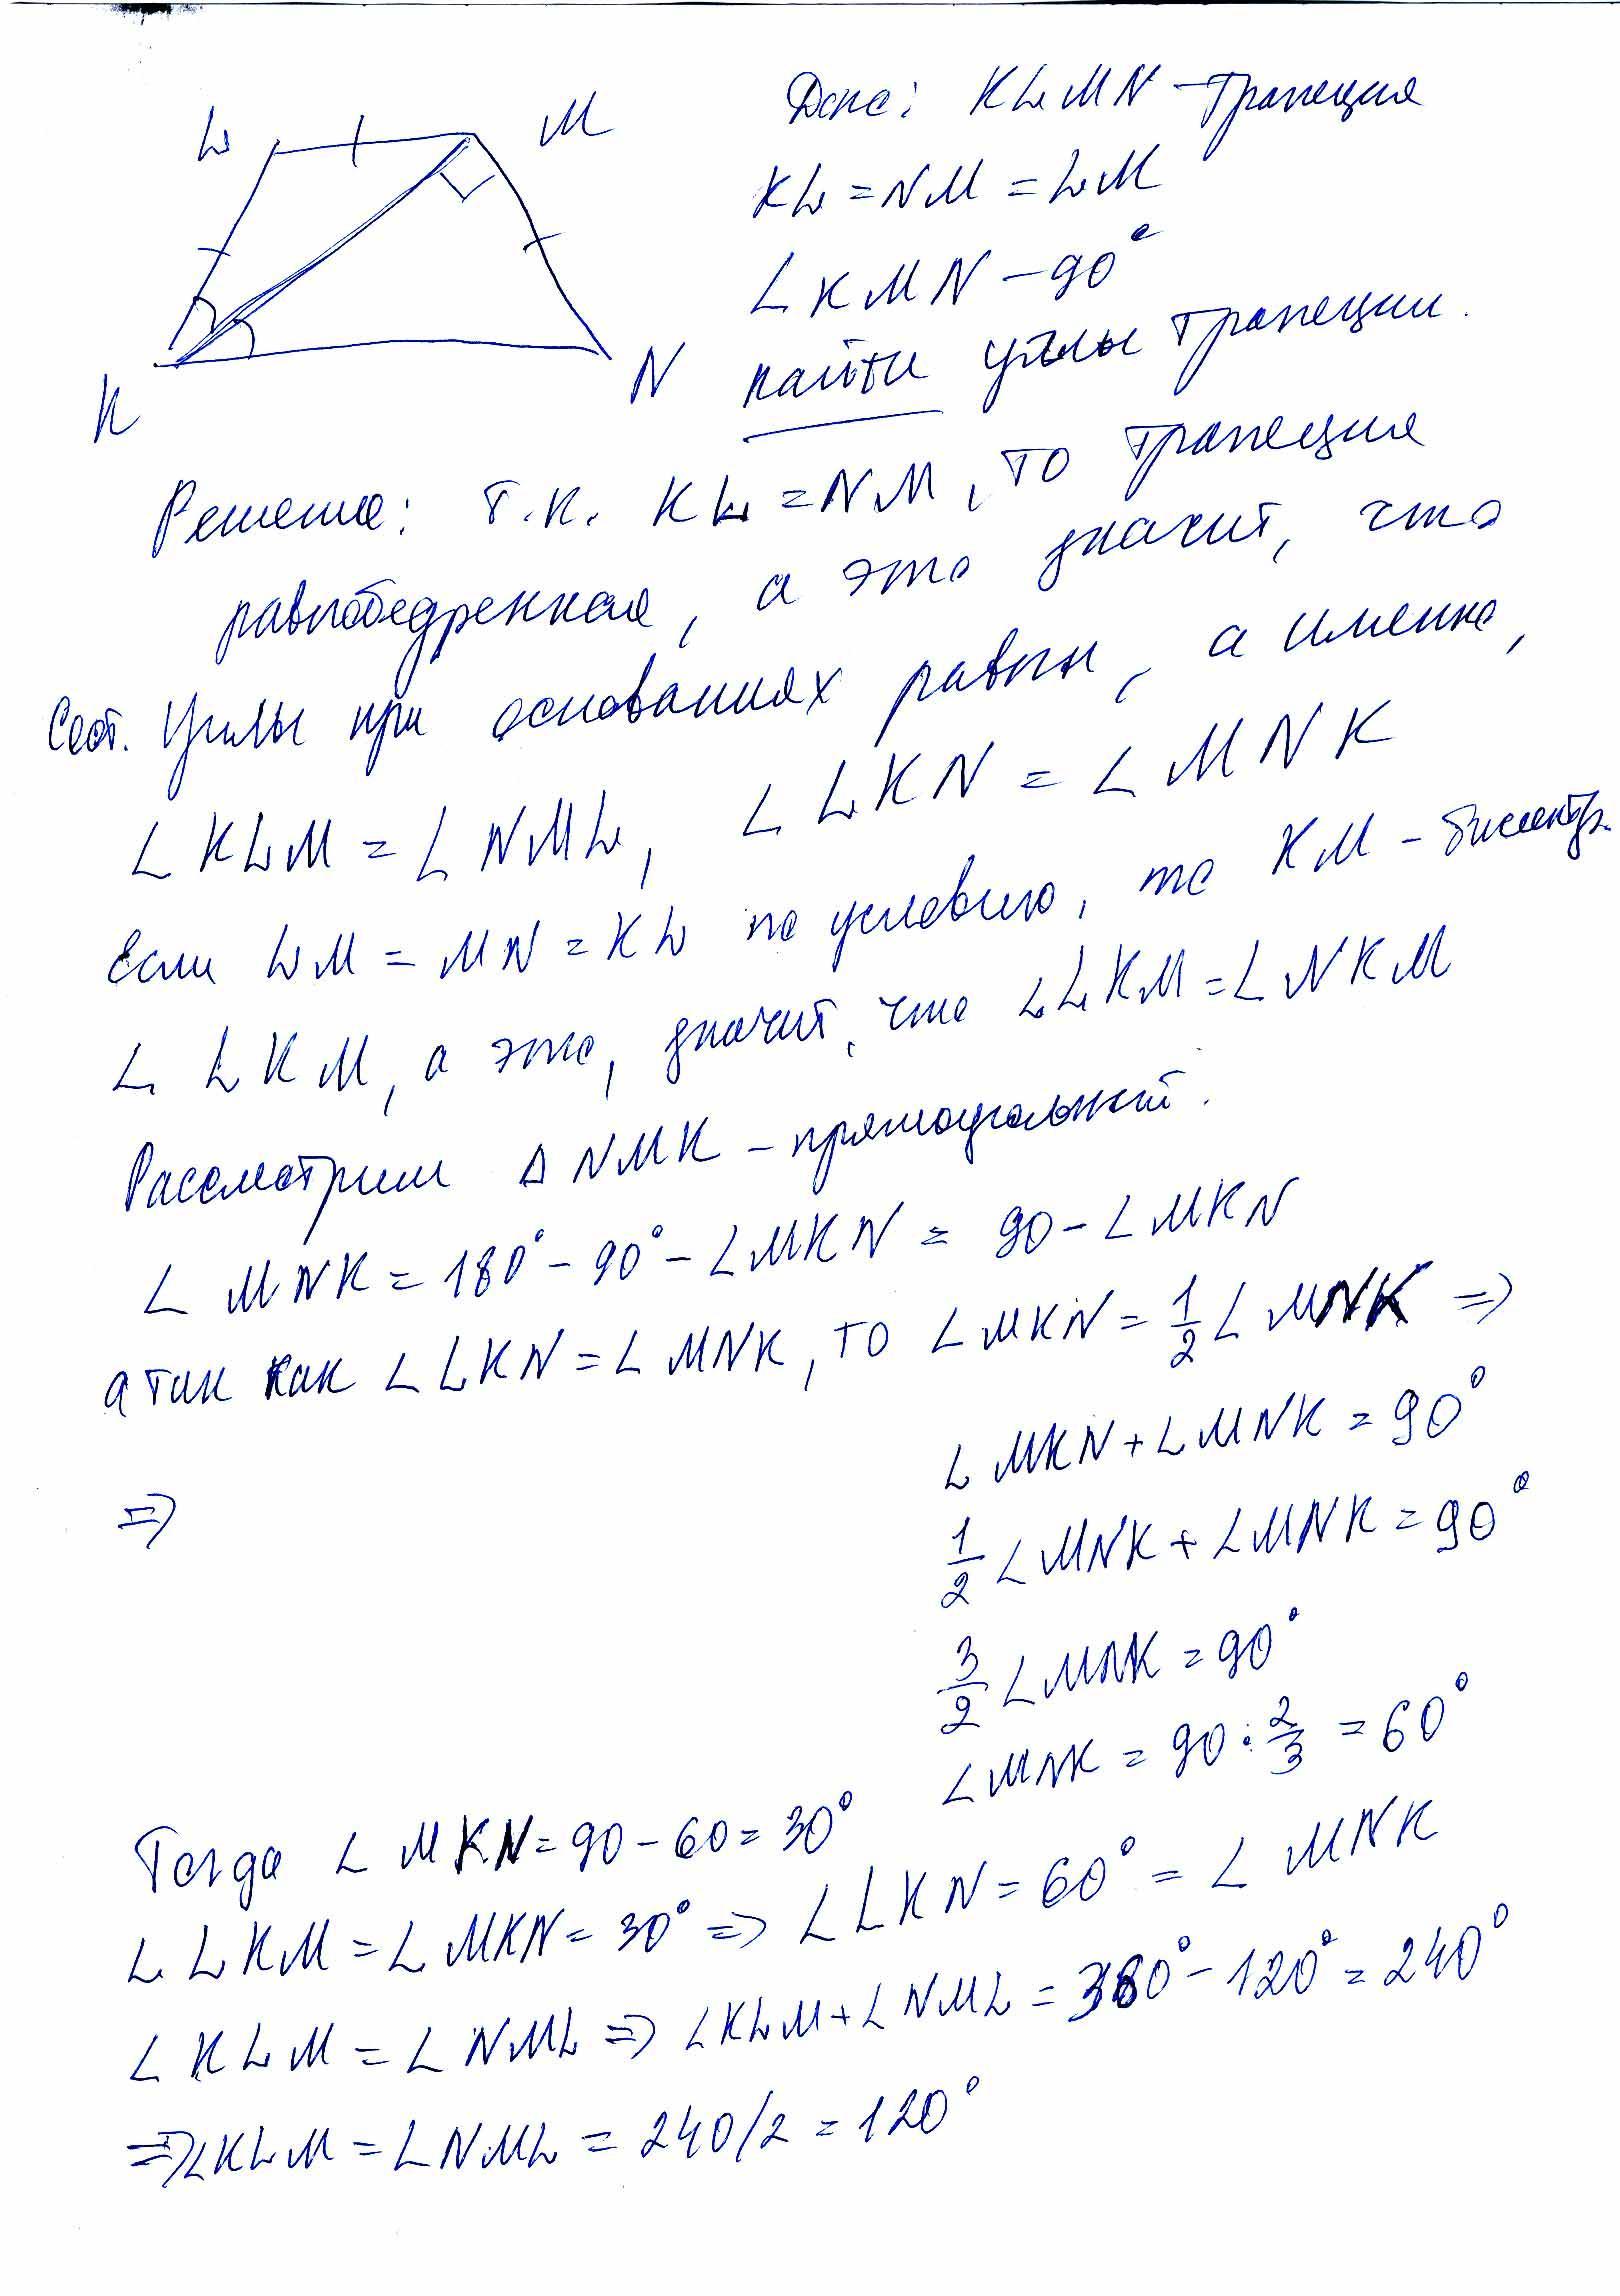 L M
K N
Дано: KLMN - трапеция
KL = NM = LM
∠KMN - 90°
найти углы трапеции.
Решение: т.к. KL = NM, то трапеция
равнобедренная, а это значит, что
соот. углы при основаниях равны, а именно,
∠KLM = ∠NML, ∠LKN = ∠MNK
Если LM = MN = KL по условию, то KM - биссектр.
∠LKM, а это, значит, что ∠LKM = ∠NKM
Рассмотрим △NMK - прямоугольный.
∠MNK = 180° - 90° - ∠MKN = 90 - ∠MKN
а так как ∠LKN = ∠MNK, то ∠MKN = 1/2 ∠MNK =>
=> ∠MKN + ∠MNK = 90°
1/2 ∠MNK + ∠MNK = 90°
3/2 ∠MNK = 90°
∠MNK = 90 : 2/3 = 60°
Тогда ∠MKN = 90 - 60 = 30°
∠LKM = ∠MKN = 30° => ∠LKN = 60° = ∠MNK
∠KLM = ∠NML => ∠KLM + ∠NML = 360° - 120° = 240°
=> ∠KLM = ∠NML = 240/2 = 120°